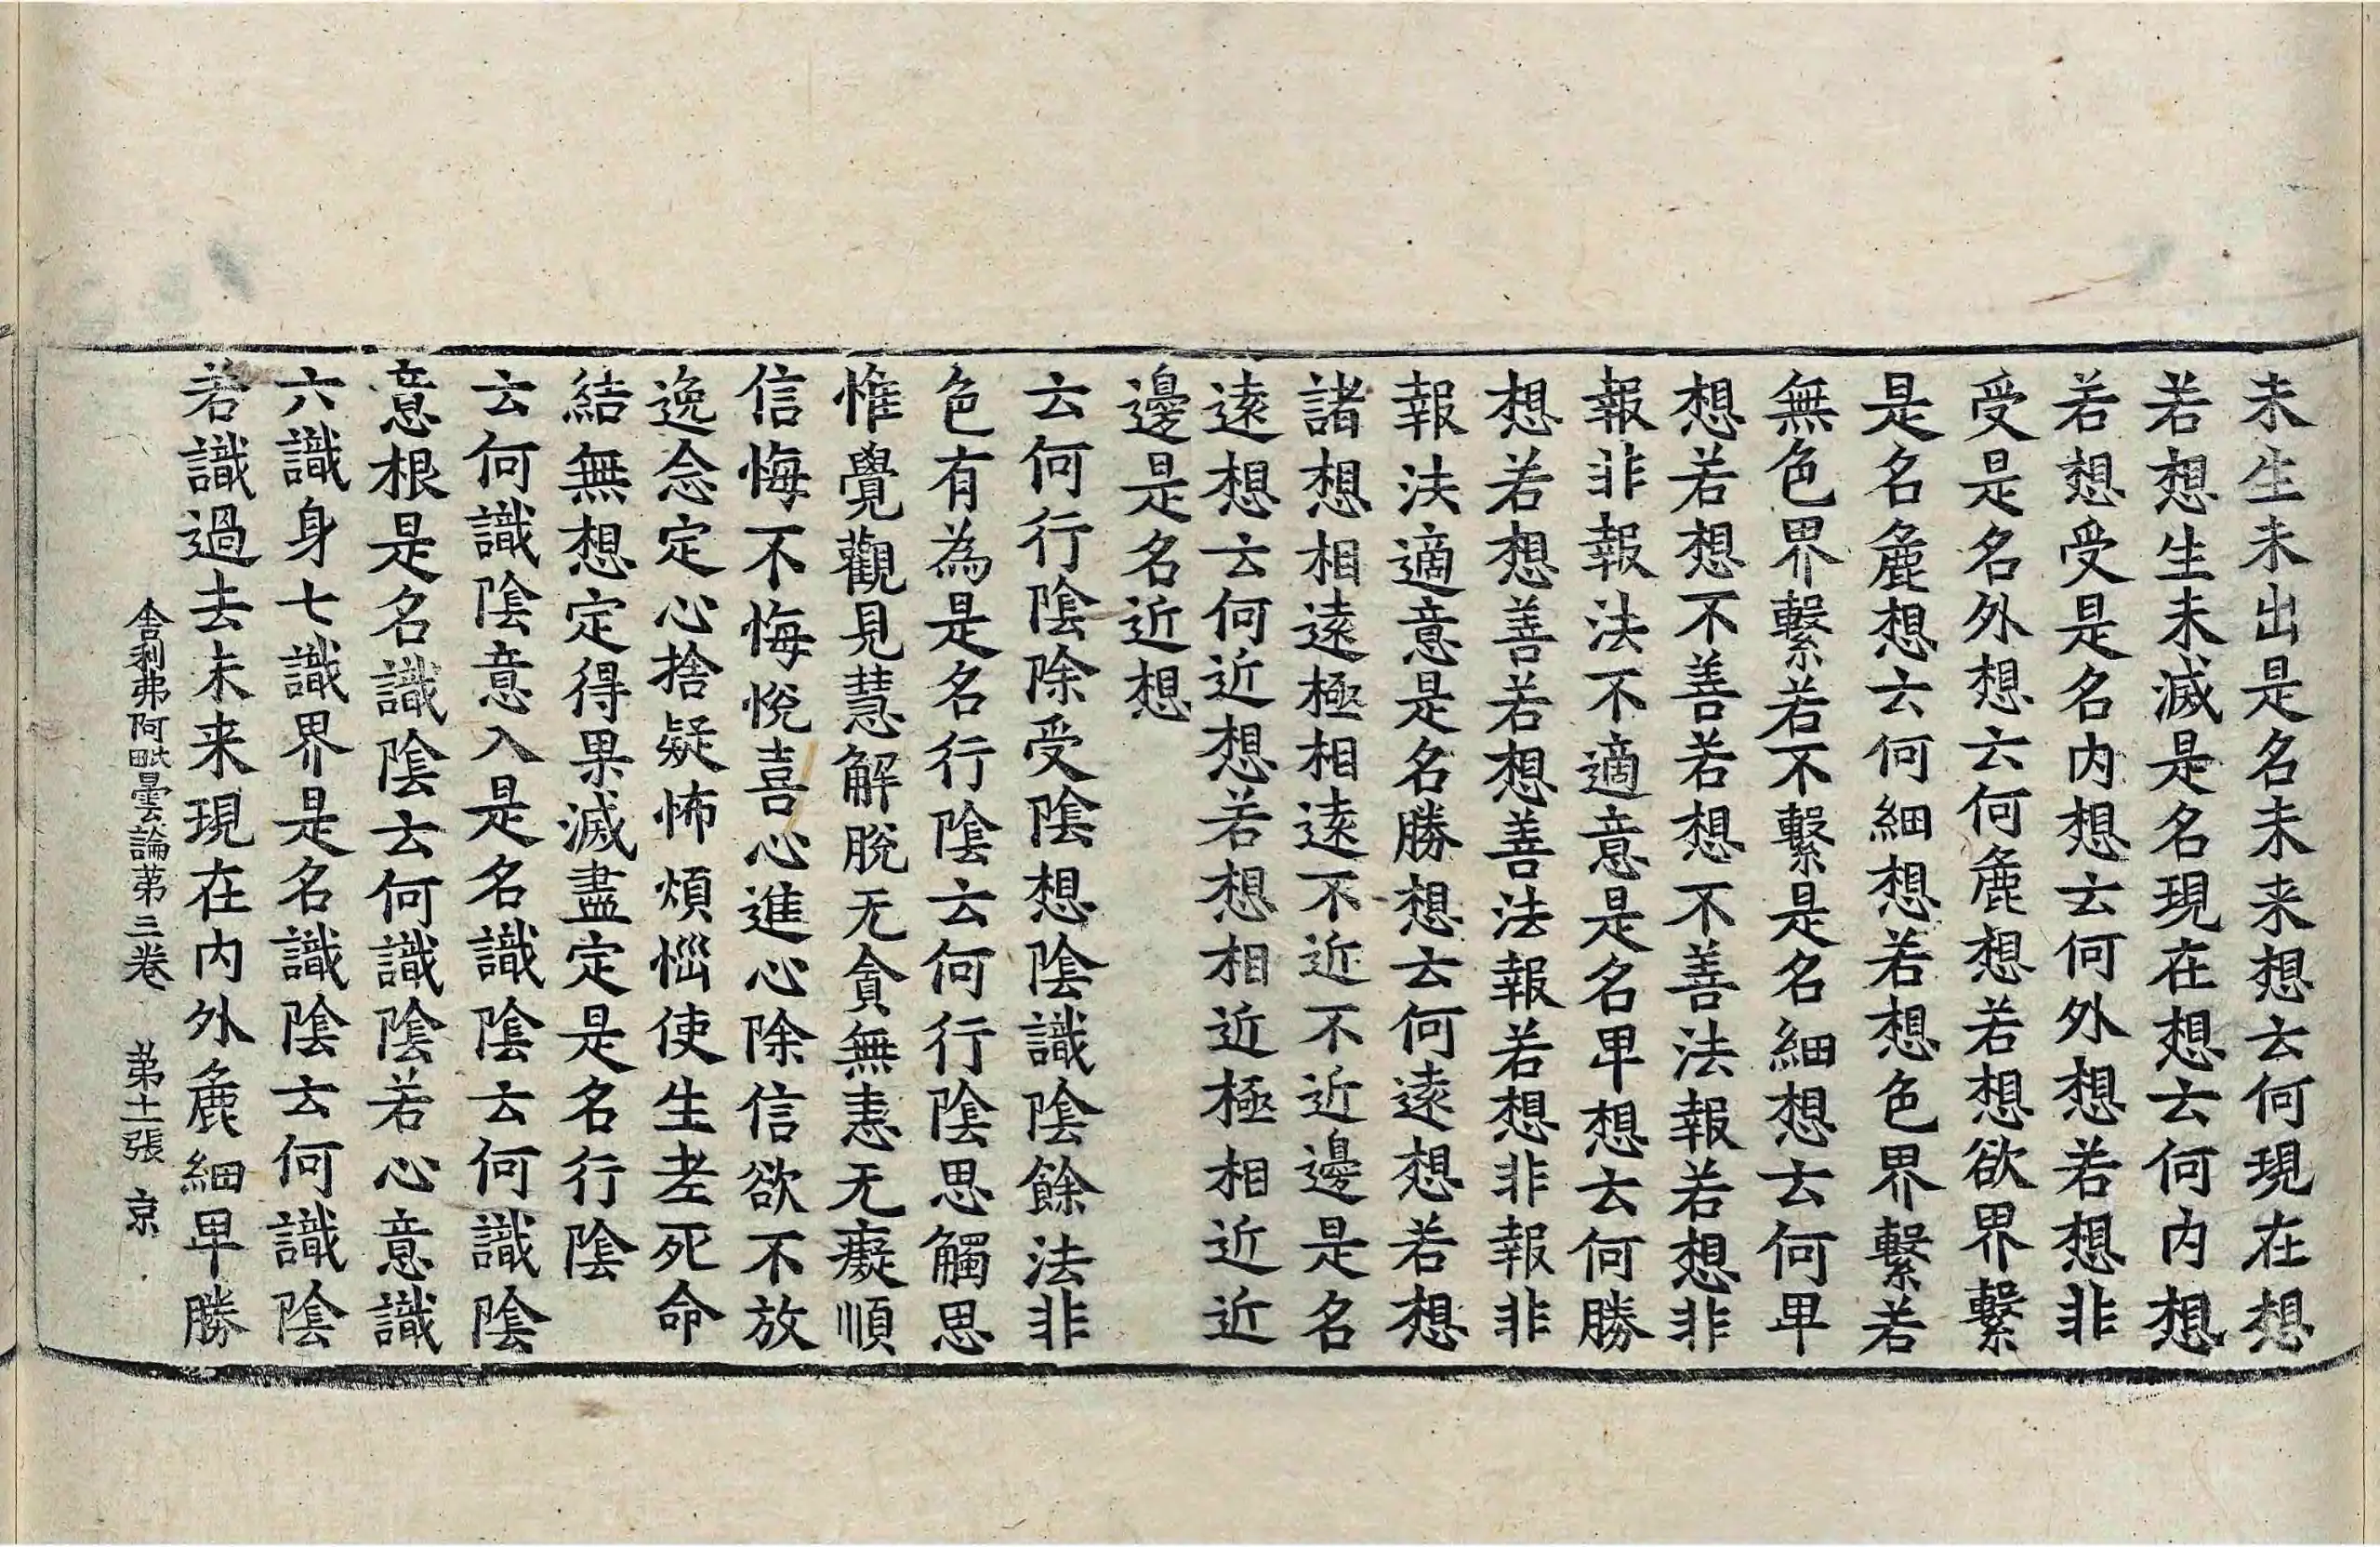 未生未出是名未来想云何現在想
若想生未滅是名現在想云何内想
若想受是名内想云何外想若想非
受是名外想云何麁想若想欲界繫
是名麁想云何細想若想色界繫若
無色界繫若不繫是名細想云何卑
想若想不善若想不善法報若想非
報非報法不適意是名卑想云何勝
想若想善若想善法報若想非報非
報法適意是名勝想云何遠想若想
諸想相遠極相遠不近不近邊是名
遠想云何近想若想相近極相近近
邊是名近想
云何行陰除受陰想陰識陰餘法非
色有為是名行陰云何行陰思觸思
惟覺觀見慧解脫无貪無恚无癡順
信悔不悔悅喜心進心除信欲不放
逸念定心捨疑怖煩惱使生老死命
結無想定得果滅盡定是名行陰
云何識陰意入是名識陰云何識陰
意根是名識陰云何識陰若心意識
六識身七識界是名識陰云何識陰
若識過去未来現在内外麁細卑勝
舎利弗阿毗曇論苐三卷 苐十二張 京